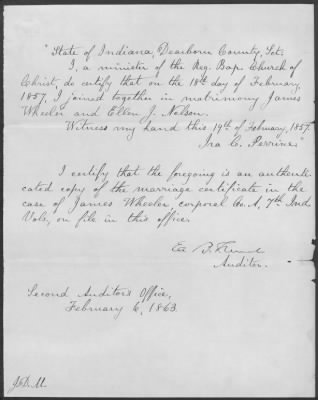 "State of Indiana, Dearborn County, Sct:
I, a minister of the Reg. Bap. Church of
Christ, do certify that on the 18th day of February,
1857, I joined together in matrimony James
Wheeler and Ellen J. Nelson.
Witness my hand this 19th of February, 1857.
Ira C. Perrine"
I certify that the foregoing is an authenti-
cated copy of the marriage certificate in the
case of James Wheeler, corporal Co. A, 7th Ind
Vols, on file in this office.
Auditor.
Second Auditor's Office,
February 6, 1863.